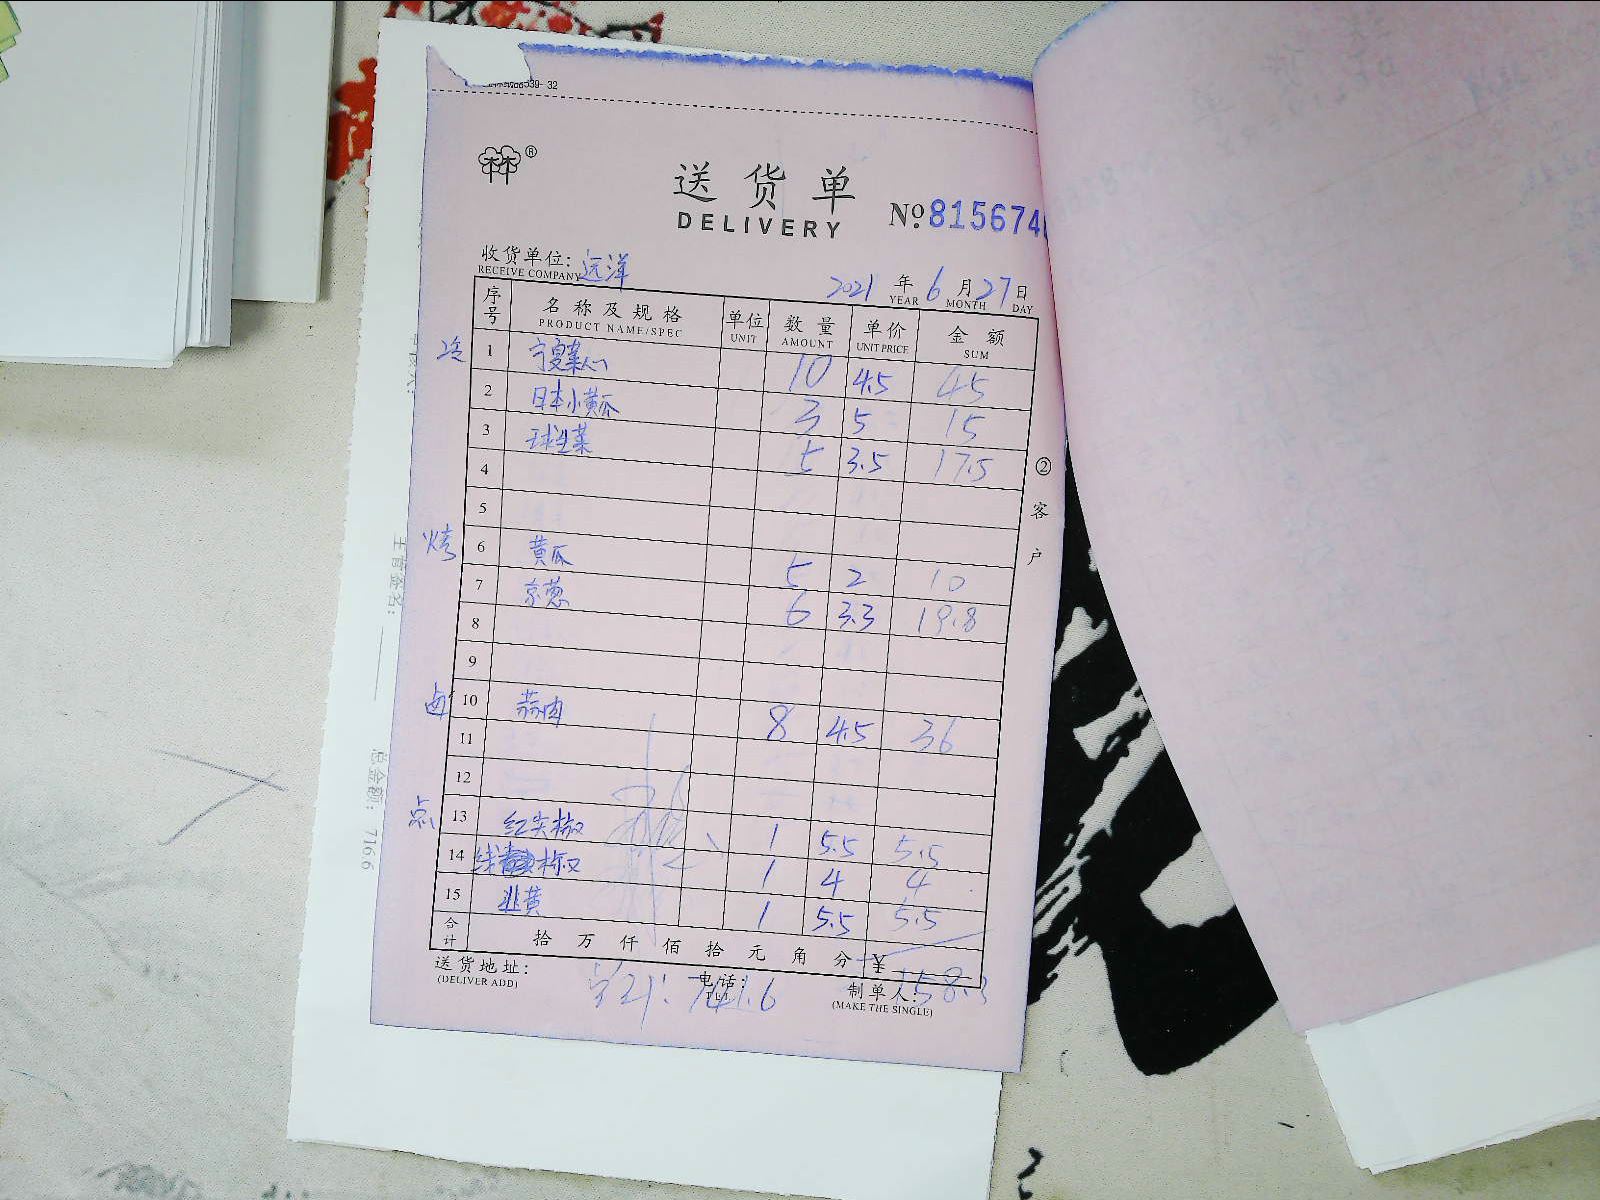 送货单
DELIVERY
№ 815674
收货单位: 远洋
RECEIVE COMPANY
2021 年 6 月 27 日
YEAR MONTH DAY
序号 名称及规格 单位 数量 单价 金额
PRODUCT NAME/SPEC UNIT AMOUNT UNIT PRICE SUM
冷 1 宁夏菜心 10 4.5 45
2 日本小黄瓜 3 5 15
3 球生菜 5 3.5 17.5
4
5
烤 6 黄瓜 5 2 10
7 京葱 6 3.3 19.8
8
9
卤 10 蒜肉 8 4.5 36
11
12
点 13 红尖椒 1 5.5 5.5
14 线椒 1 4 4
15 韭黄 1 5.5 5.5
合计 拾 万 仟 佰 拾 元 角 分 ¥ 158.3
送货地址: 电话: 制单人:
(DELIVER ADD) TEL (MAKE THE SINGLE)
741.6
②客户
主管签名:
总金额: 716.6